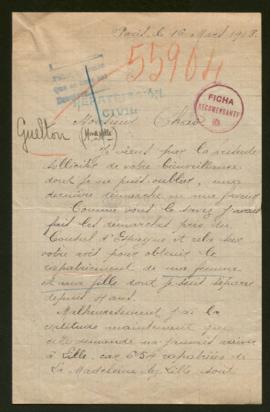 Paris le 16 Mars 1918
55904
RAPATRIEMENT
CIVIL
FICHA
RECOMENDANTE
Guelton
Monsieur
Je viens par la présente
solliciter de votre bienveillance
dont je ne puis oublier, une
dernière démarche en ma faveur
Comme vous le savez j'avais
fait les démarches près du
Consul d'Espagne et cela sur
votre avis pour obtenir le
rapatriement de ma femme
et ma fille dont je suis séparé
depuis 4 ans.
Malheureusement j'ai la
certitude maintenant que
cette demande ne
à Lille car 654 rapatriées de
La Madeleine lez Lille sont